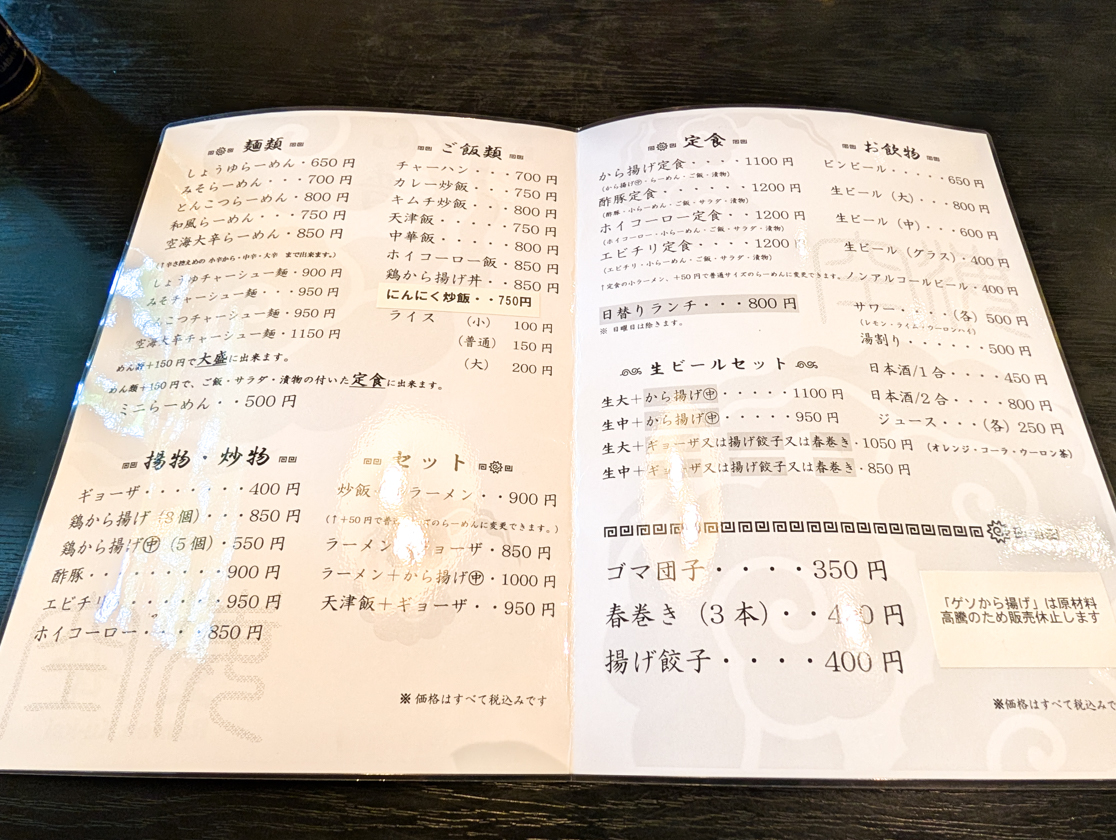 麺類
しょうゆらーめん・650円
みそらーめん・・・700円
とんこつらーめん・800円
和風らーめん・・・750円
空海大辛らーめん・850円
(↑辛さ控えめの 小辛から・中辛・大辛 まで出来ます。)
しょうゆチャーシュー麺・900円
みそチャーシュー麺・・950円
とんこつチャーシュー麺・950円
空海大辛チャーシュー麺・1150円
めん類+150円で大盛に出来ます。
めん類+150円で、ご飯・サラダ・漬物の付いた定食に出来ます。
ミニらーめん・・500円
ご飯類
チャーハン・・・700円
カレー炒飯・・・750円
キムチ炒飯・・・800円
天津飯・・・・・750円
中華飯・・・・・800円
ホイコーロー飯・850円
鶏から揚げ丼・・850円
にんにく炒飯・・750円
ライス (小) 100円
(普通) 150円
(大) 200円
揚物・炒物
ギョーザ・・・・・・・400円
鶏から揚げ(8個)・・・850円
鶏から揚げ㊥(5個)・550円
酢豚・・・・・・・・・900円
エビチリ・・・・・・・950円
ホイコーロー・・・・850円
セット
炒飯・ ラーメン・・900円
(↑+50円で普通サイズのらーめんに変更できます。)
ラーメン+ギョーザ・850円
ラーメン+から揚げ㊥・1000円
天津飯+ギョーザ・・950円
※価格はすべて税込みです
定食
から揚げ定食・・・・1100円
(から揚げ㊥・らーめん・ご飯・漬物)
酢豚定食・・・・・・1200円
(酢豚・小らーめん・ご飯・サラダ・漬物)
ホイコーロー定食・・1200円
(ホイコーロー・小らーめん・ご飯・サラダ・漬物)
エビチリ定食・・・・1200円
(エビチリ・小らーめん・ご飯・サラダ・漬物)
↑定食の小ラーメン、+50円で普通サイズのらーめんに変更できます。
日替りランチ・・・800円
※ 日曜日は除きます。
生ビールセット
生大+から揚げ㊥・・・・・1100円
生中+から揚げ㊥・・・・・950円
生大+ギョーザ又は揚げ餃子又は春巻き・1050円
生中+ギョーザ又は揚げ餃子又は春巻き・850円
お飲物
ビンビール・・・・・650円
生ビール(大)・・・800円
生ビール(中)・・・600円
生ビール(グラス)・400円
ノンアルコールビール・400円
サワー・・・・(各)500円
(レモン・ライム・ウーロンハイ)
湯割り・・・・・・500円
日本酒/1合・・・・450円
日本酒/2合・・・・800円
ジュース・・・(各)250円
(オレンジ・コーラ・ウーロン茶)
ゴマ団子・・・・350円
春巻き(3本)・・4 0円
揚げ餃子・・・・400円
「ゲソから揚げ」は原材料
高騰のため販売休止します
※価格はすべて税込みで